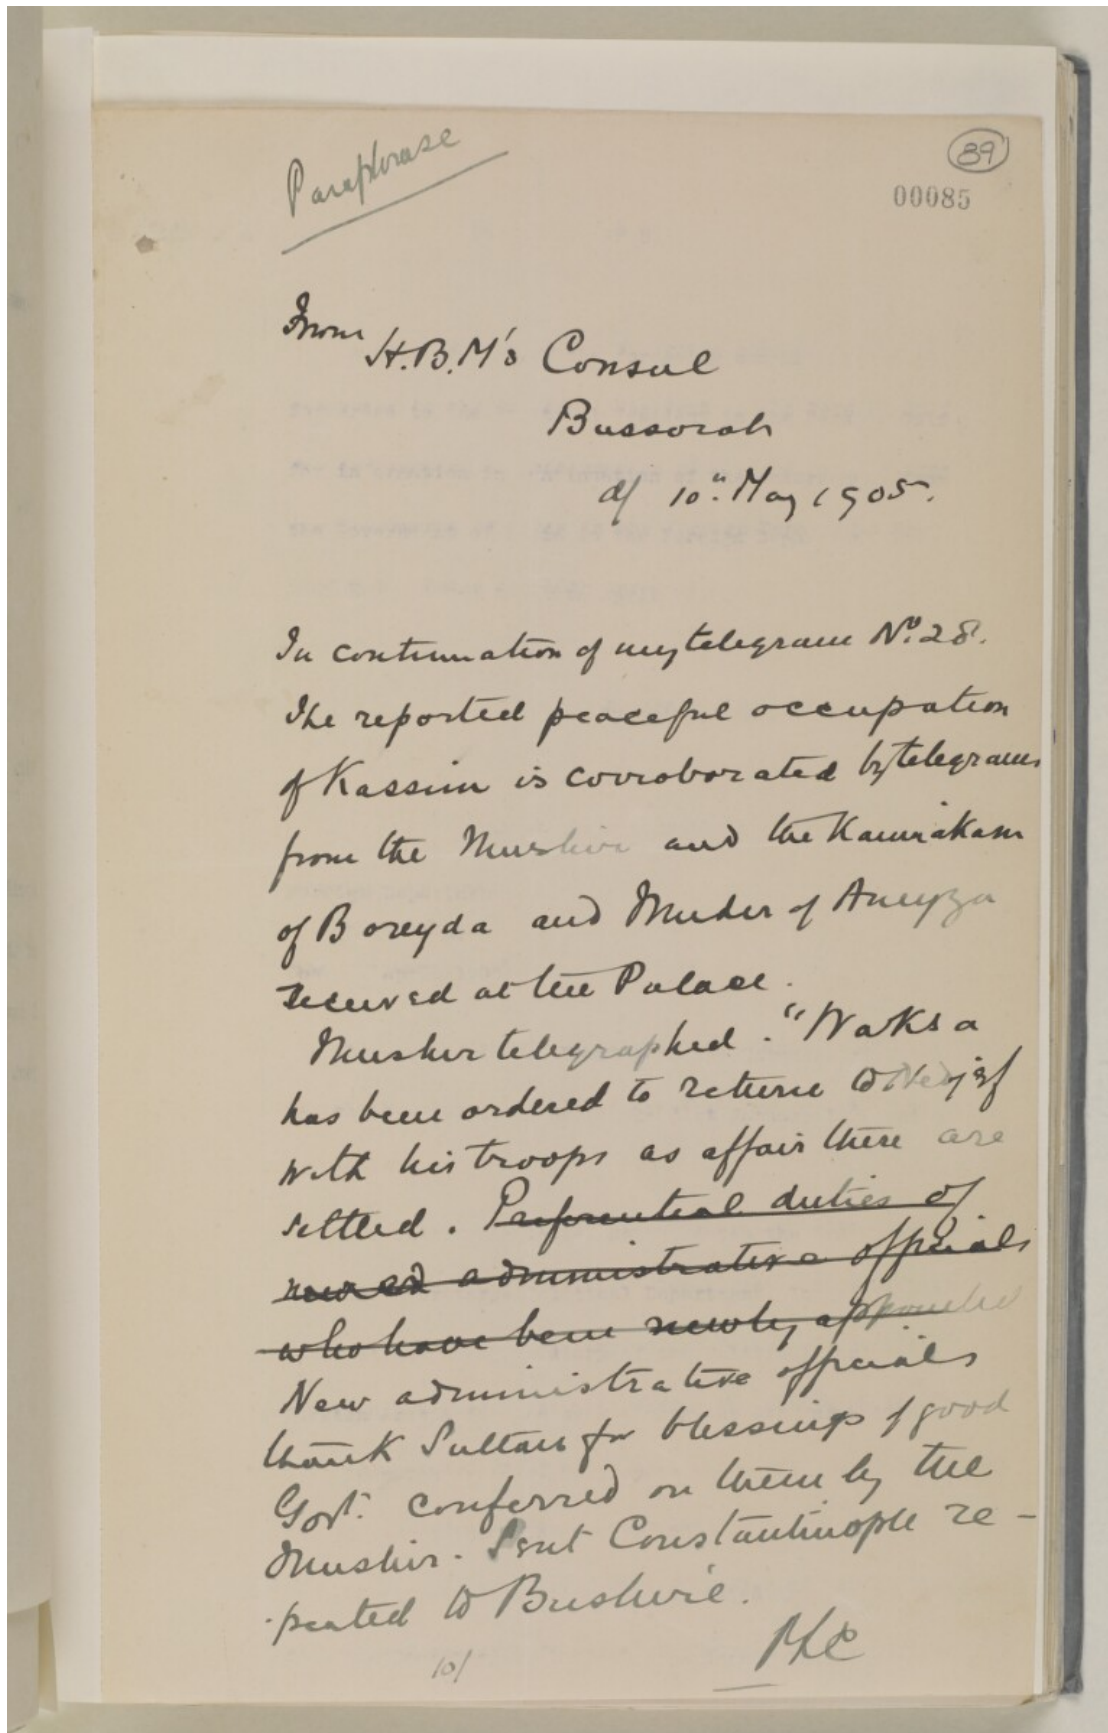 Paraphrase
39
00085
From
H.B.M's Consul
Bussorah
d/ 10th May 1905.
In continuation of my telegram No. 28.
The reported peaceful occupation
of Kassim is corroborated by telegrams
from the Mushir and the Kaimakam
of Boreyda and Mudir of Aneyza
received at the Palace.
Mushir telegraphed. "Waksa
has been ordered to return to Nedjef
with his troops as affairs there are
settled. Preferential duties of
administrative officials
who have been newly appointed
New administrative officials
thank Sultan for blessings of good
Govt. conferred on them by the
Mushir. Sent Constantinople re-
peated to Bushire.
PZC
10/